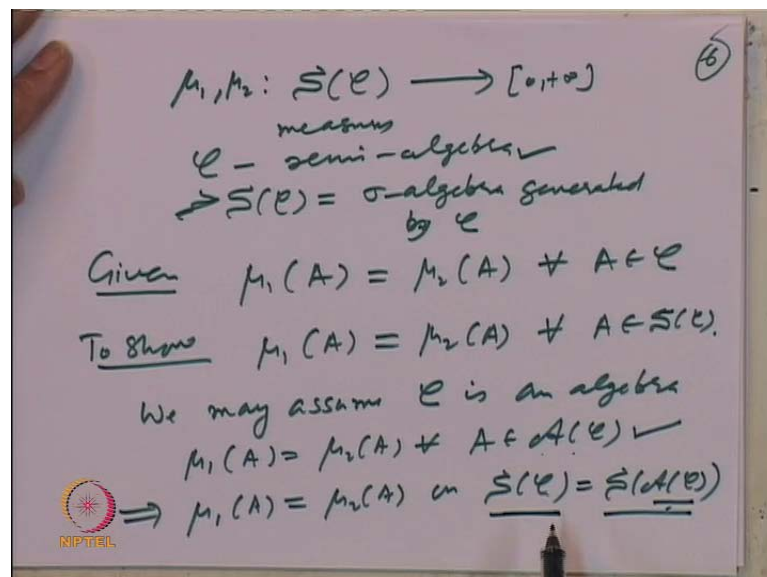 6
μ₁, μ₂ : S(𝒞) ⟶ [0, +∞]
measures
𝒞 – semi-algebra ✓
S(𝒞) = σ-algebra generated
by 𝒞
Given μ₁(A) = μ₂(A) ∀ A ∈ 𝒞
To Show μ₁(A) = μ₂(A) ∀ A ∈ S(𝒞).
We may assume 𝒞 is an algebra
μ₁(A) = μ₂(A) ∀ A ∈ 𝒜(𝒞) ✓
⟹ μ₁(A) = μ₂(A) on S(𝒞) = S(𝒜(𝒞))
NPTEL